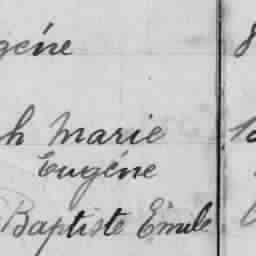 géne 8
h Marie
Eugéne
Baptiste Emile